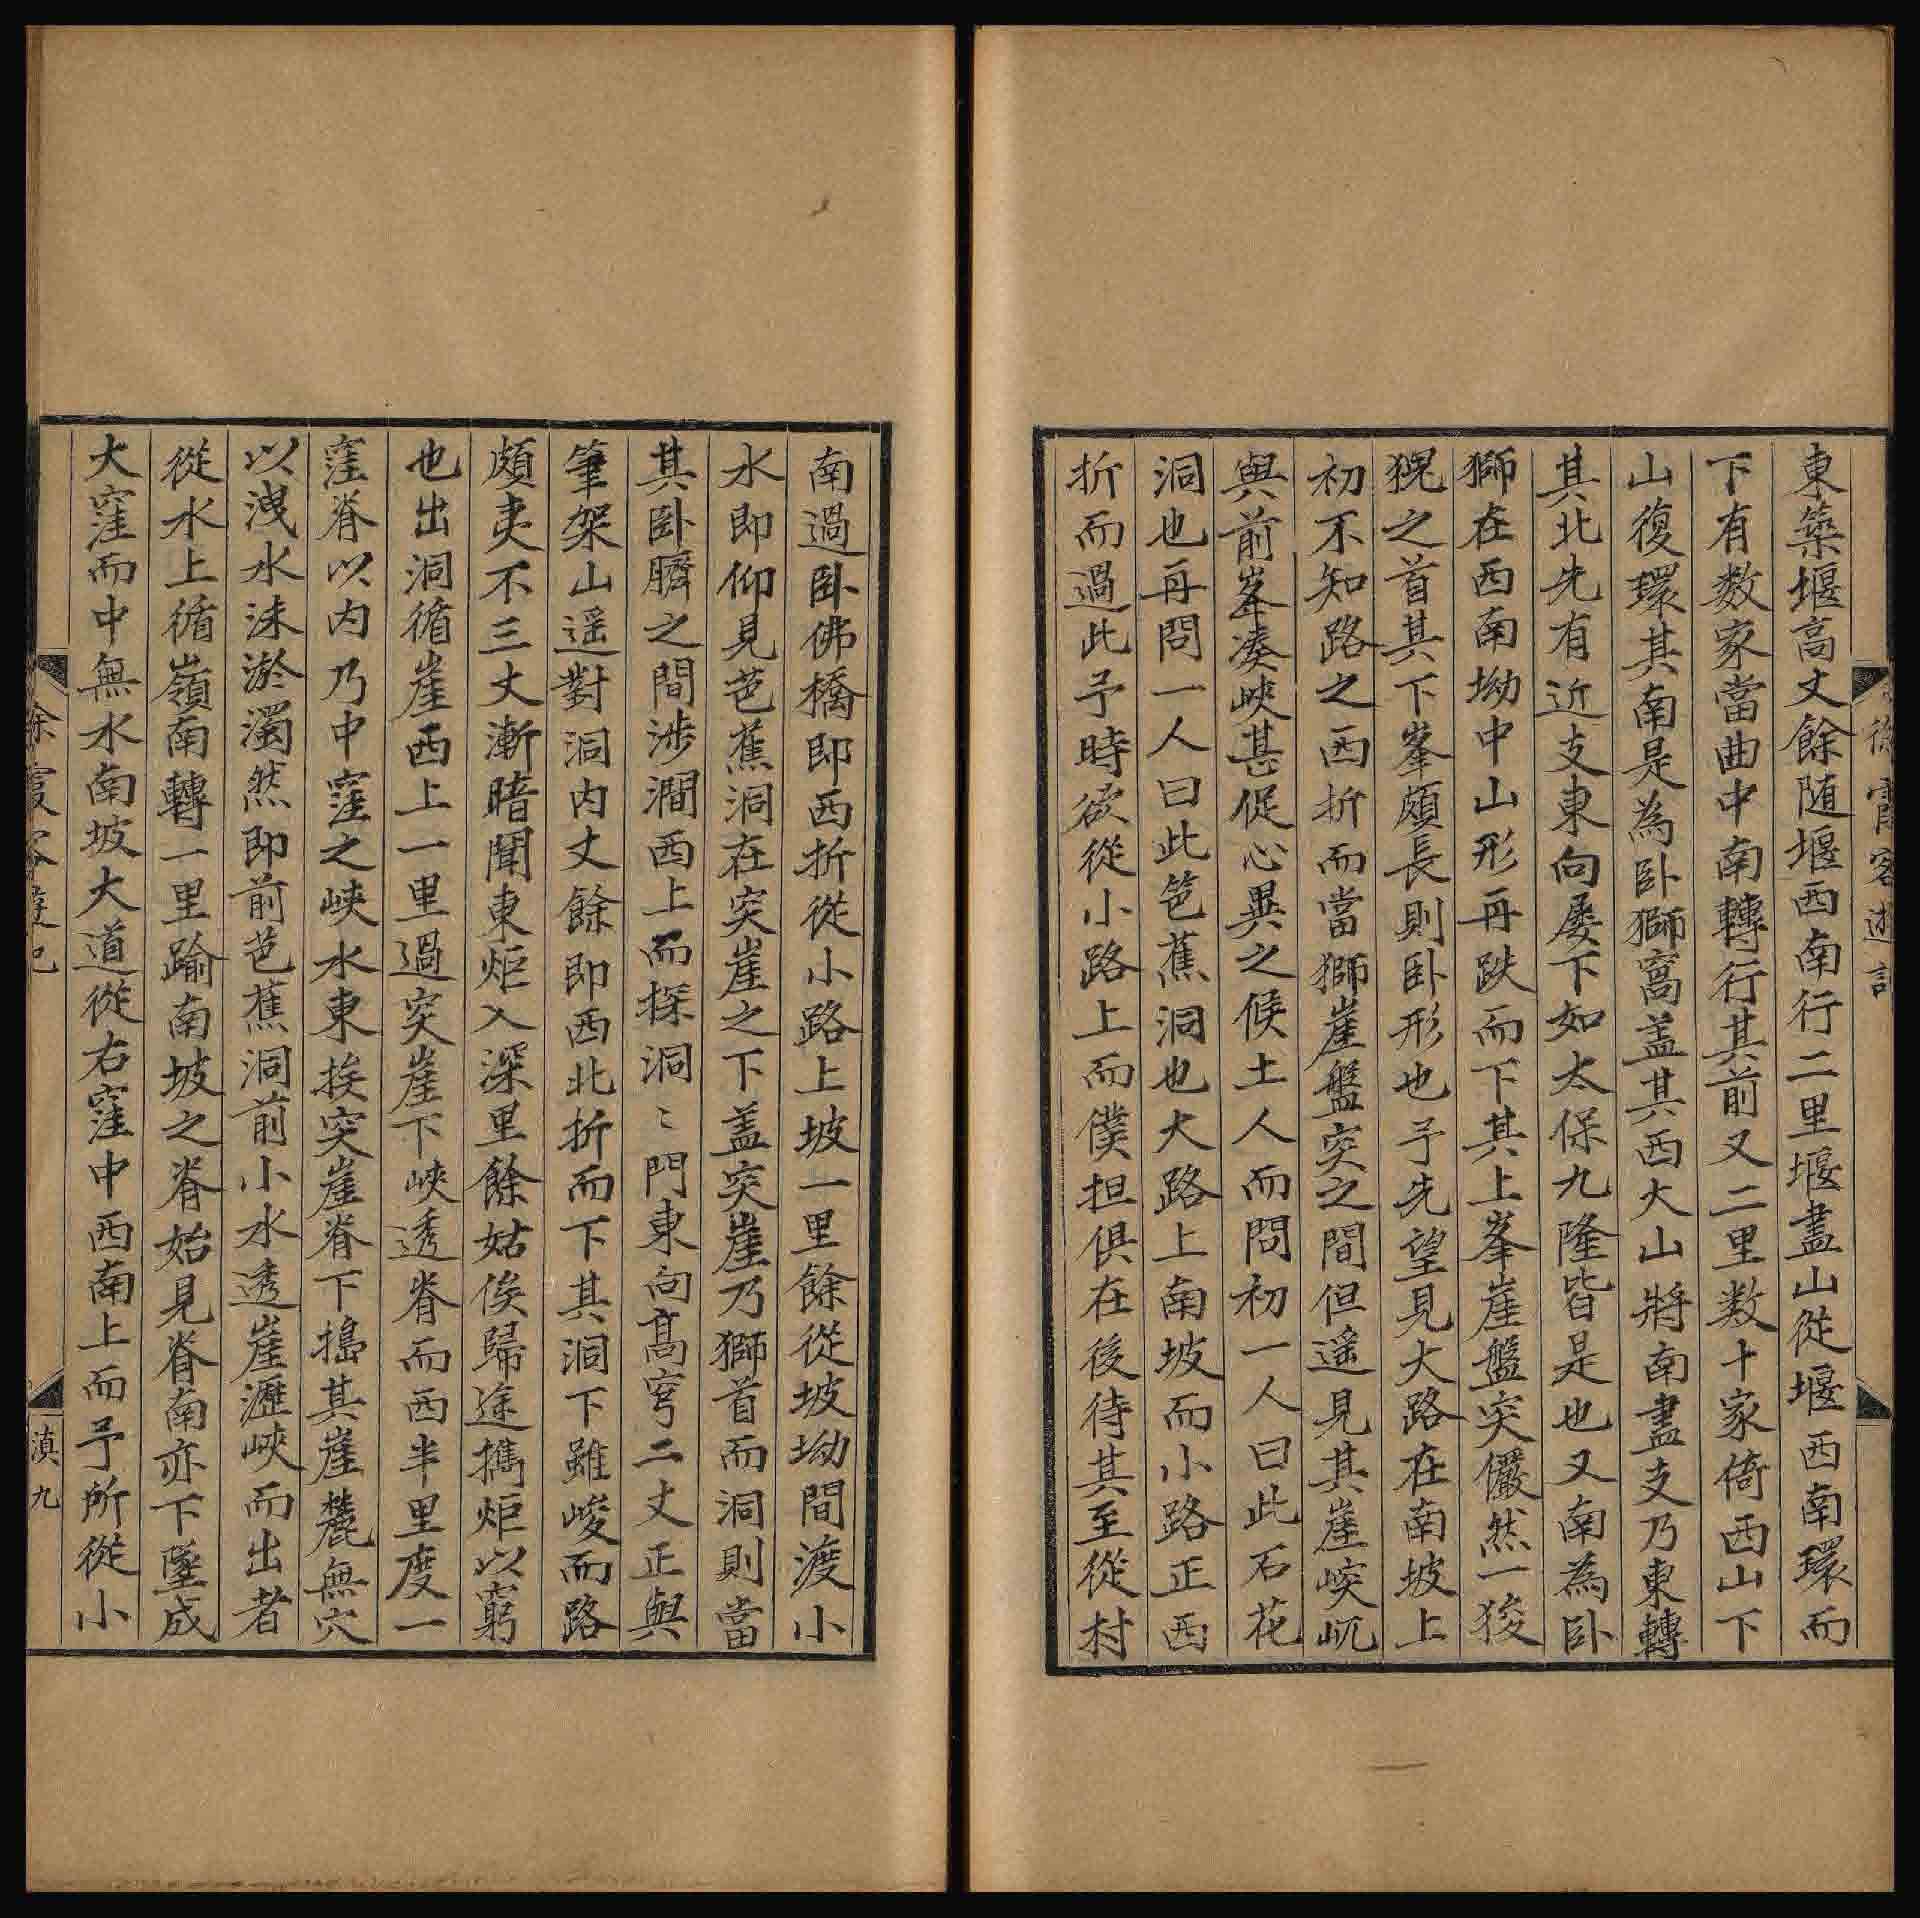 徐霞客遊記
東築堰高丈餘随堰西南行二里堰盡山從堰西南環而
下有数家當曲中南轉行其前又二里数十家倚西山下
山復環其南是為卧獅窩盖其西大山將南盡支乃東轉
其北先有近支東向屡下如太保九隆皆是也又南為卧
獅在西南坳中山形再跌而下其上峯崖盤突儼然一狻
猊之首其下峯頗長則卧形也予先望見大路在南坡上
初不知路之西折而當獅崖盤突之間但遥見其崖峻屼
與前峯凑峽甚促心異之候土人而問初一人曰此石花
洞也再問一人曰此笆蕉洞也大路上南坡而小路正西
折而過此予時欲從小路上而僕担俱在後待其至從村
南過卧佛橋即西折從小路上坡一里餘從坡坳間渡小
水即仰見芭蕉洞在突崖之下盖突崖乃獅首而洞則當
其卧臍之間涉澗西上而探洞〻門東向高穹二丈正與
筆架山遥對洞内丈餘即西北折而下其洞下雖峻而路
頗夷不三丈漸暗聞東炬入深里餘姑俟歸途攜炬以窮
也出洞循崖西上一里過突崖下峽透脊而西半里度一
窪脊以内乃中窪之峽水東挨突崖脊下搗其崖麓無穴
以洩水沫淤濁然即前芭蕉洞前小水透崖瀝峽而出者
從水上循嶺南轉一里踰南坡之脊始見脊南亦下墜成
大窪而中無水南坡大道從右窪中西南上而予所從小
徐霞客遊記
滇九